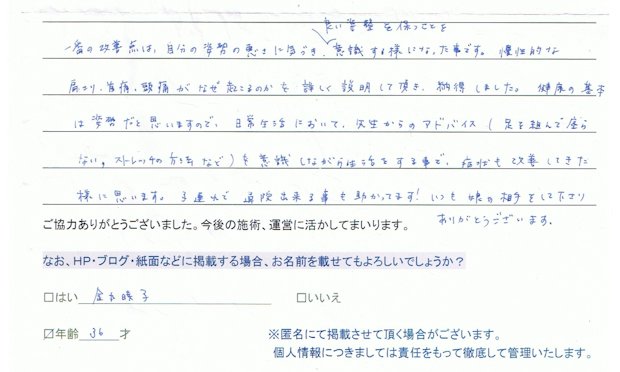 良い姿勢を保つことを
一番の改善点は、自分の姿勢の悪さに気づき、意識する様になった事です。慢性的な
肩こり、首痛、頭痛がなぜ起こるのかを詳しく説明して頂き、納得しました。健康の基本
は姿勢だと思いますので、日常生活において、先生からのアドバイス(足を組んで座ら
ない、ストレッチの方法など)を意識しながら生活をする事で、症状も改善してきた
様に思います。子連れで通院出来る事も助かってます!いつも娘の相手をして下さり
ありがとうございます。
ご協力ありがとうございました。今後の施術、運営に活かしてまいります。
なお、HP・ブログ・紙面などに掲載する場合、お名前を載せてもよろしいでしょうか?
□はい 子 □いいえ
☑年齢 36 才 ※匿名にて掲載させて頂く場合がございます。
個人情報につきましては責任をもって徹底して管理いたします。